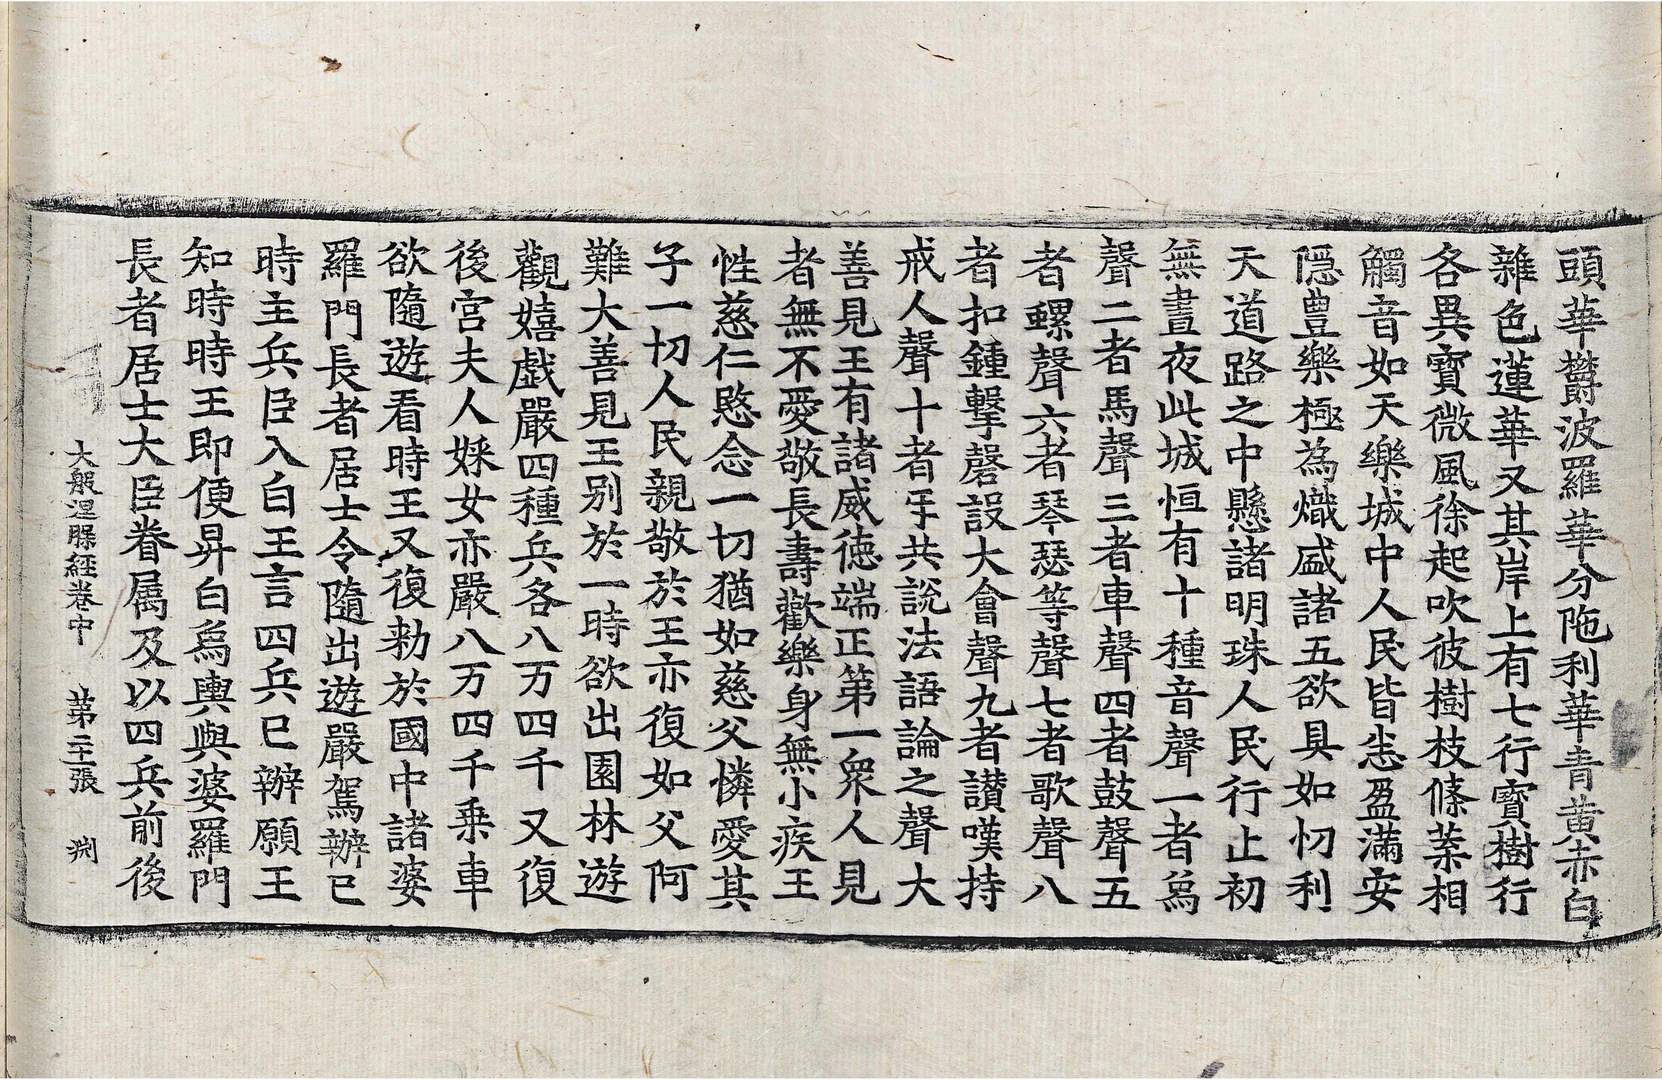 頭華欝波羅華分陁利華青黄赤白
雜色蓮華又其岸上有七行寶樹行
各異寶微風徐起吹彼樹枝條葉相
觸音如天樂城中人民皆悉盈滿安
隱豊樂極為熾盛諸五欲具如忉利
天道路之中懸諸明珠人民行止初
無晝夜此城恒有十種音聲一者爲
聲二者馬聲三者車聲四者鼓聲五
者螺聲六者琴瑟等聲七者歌聲八
者扣鍾擊磬設大會聲九者讃嘆持
戒人聲十者𠦑共説法語論之聲大
善見王有諸威徳端正第一衆人見
者無不愛敬長壽歡樂身無小疾王
性慈仁愍念一切猶如慈父憐愛其
子一切人民親敬於王亦復如父阿
難大善見王別於一時欲出園林遊
觀嬉戯嚴四種兵各八万四千又復
後宮夫人婇女亦嚴八万四千乗車
欲隨遊看時王又復勑於國中諸婆
羅門長者居士令隨出遊嚴駕辦已
時主兵臣入白王言四兵已辦願王
知時時王即便昇白爲輿與婆羅門
長者居士大臣眷属及以四兵前後
大般涅槃経卷中 第二十二張 洌